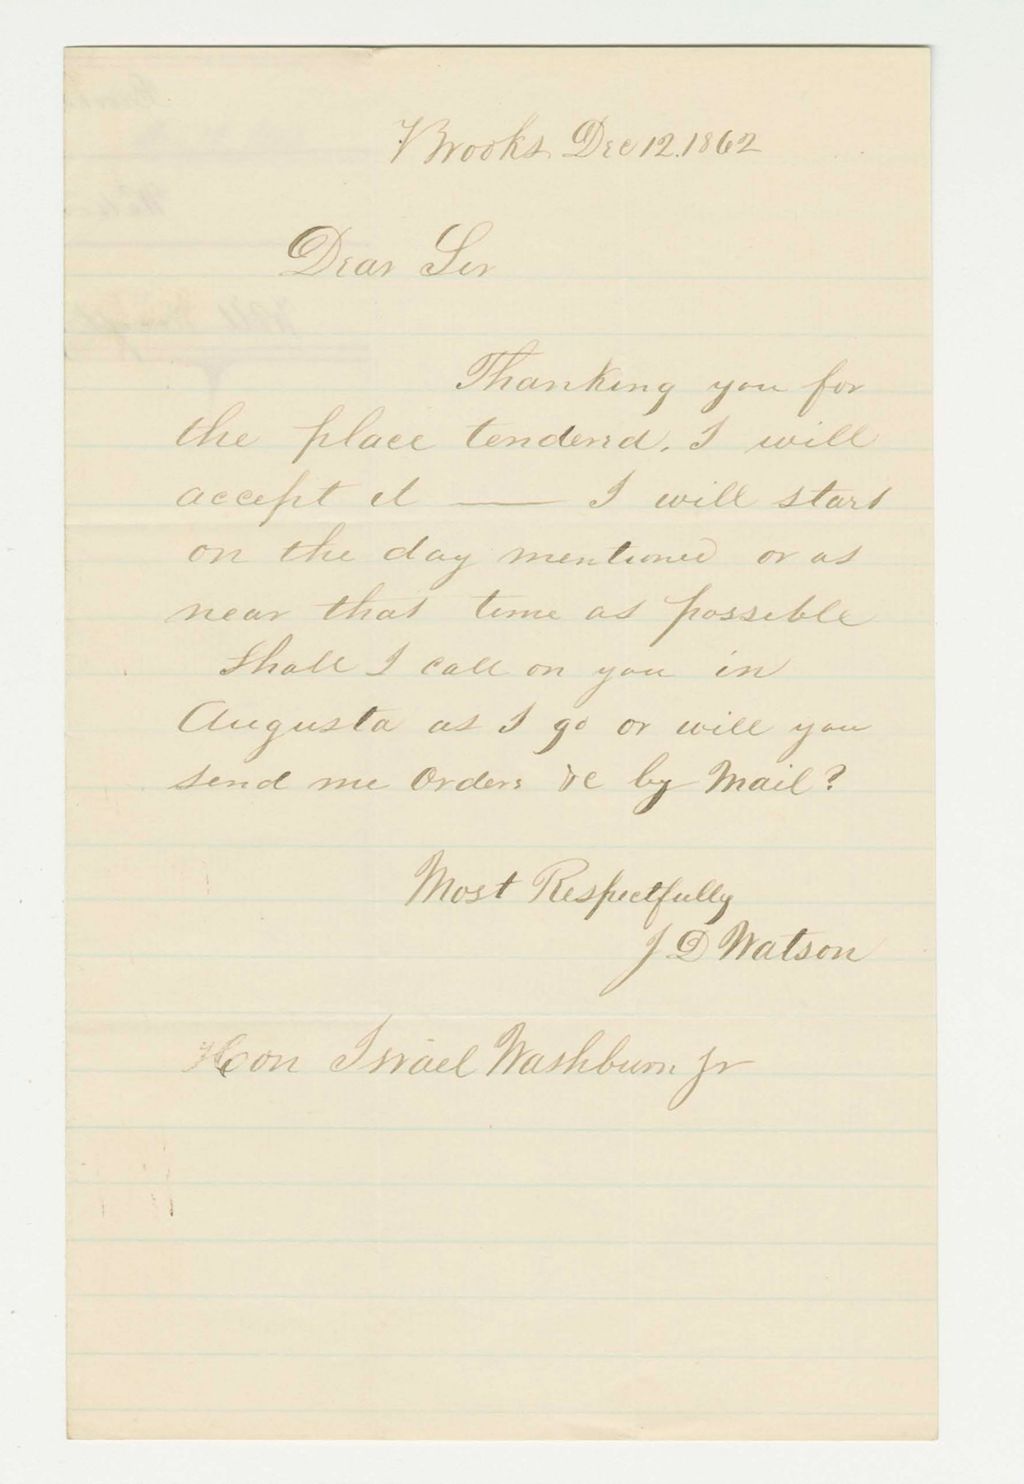 Brooks Dec 12. 1862
Dear Sir
Thanking you for
the place tendered. I will
accept it — I will start
on the day mentioned or as
near that time as possible
Shall I call on you in
Augusta as I go or will you
send me Orders &c by Mail?
Most Respectfully
J D Watson
Hon Israel Washburn Jr